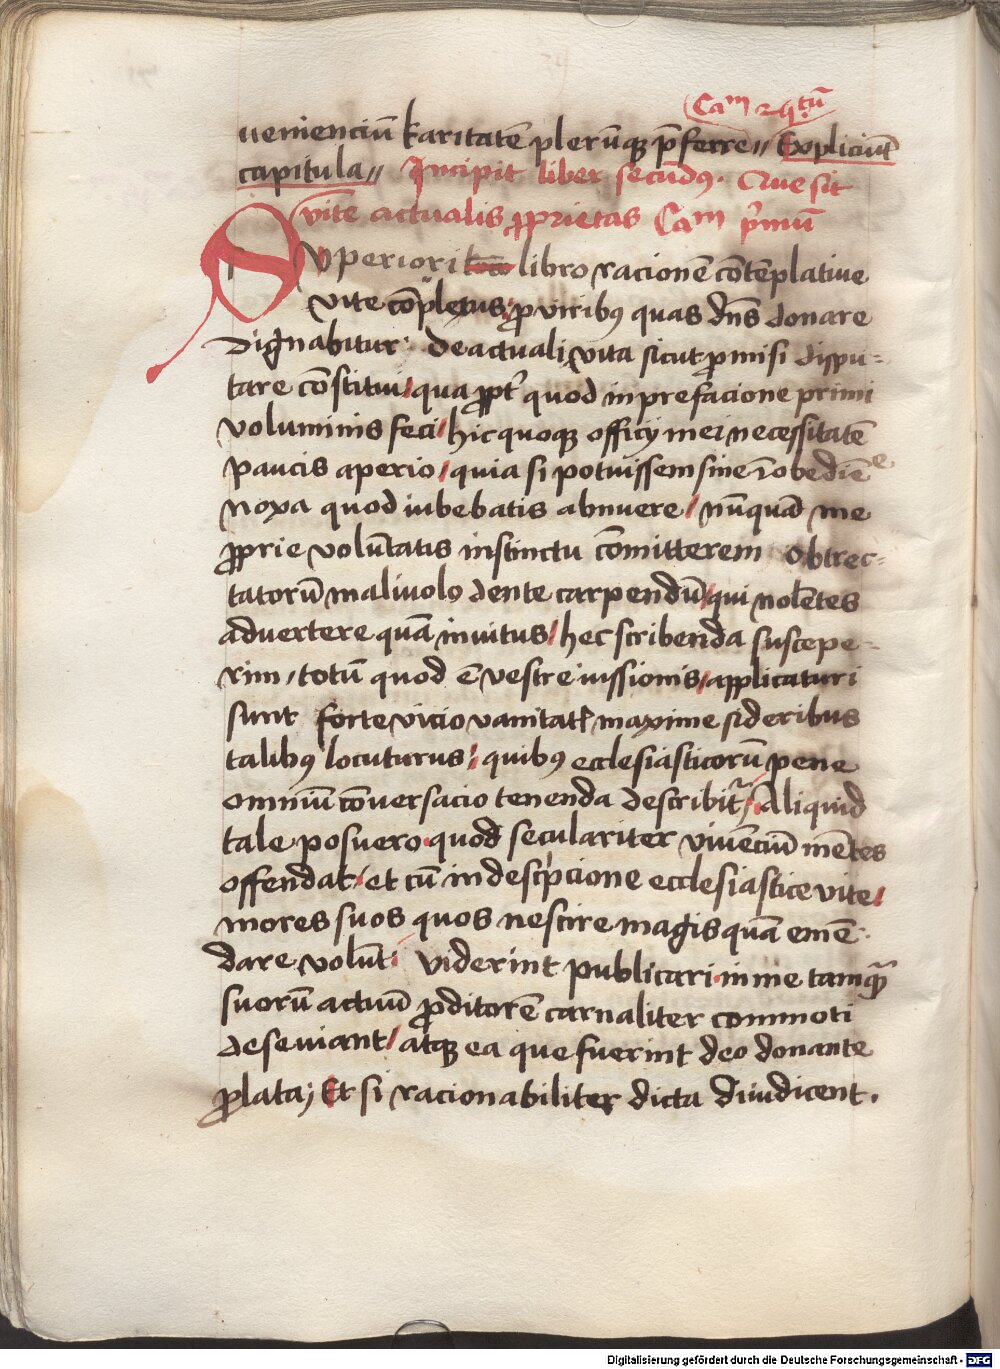 Caᵐ 24tū
uenienciū karitatē plerūqꝫ p̄ferre〃 Expliciūt
capitula〃 Incipit liber secūdꝰ. Que sit
vite actualis ꝓprietas Caᵐ p̄mū
Superiori libro racionē cōtēplatiue
vite cōpletus / ꝓ viribꝰ quas dn̄s donare
dignabitur: de actuali vita sicut ꝓmisi dispu-
tare cōstitui / qua ꝓpt̓ quod in prefacione primi
voluminis feci / hic quoqꝫ officij mei necessitatē
paucis aperio / quia si potuissem sine īobediē͏ͤ
noxa quod iubebatis abnuere / nūquā me
ꝓprie volūtatis instinctu cōmitterem obtrec-
tatorū maliuolo dente carpendū / qui nolētes
aduertere quā inuitus / hec scribenda suscepe-
rim / totū quod ē vestre iussionis / applicaturi
sunt forte vicio vanitatꝭ maxime si de ribus
talibꝰ locuturus / quibꝰ ecclesiasticorū pene
omniū cōuersacio tenenda describit᷑ / Aliquid
tale posuero · quod seculariter viuēciū mētes
offendat / et cū in descp̄cione ecclesiastice vite /
mores suos quos nescire magis quā emē-
dare volūt / viderint publicari in me tamqᷓ
suorū actuū ꝓditorē carnaliter commoti
deseuiant / atqꝫ ea que fuerint deo donante
ꝓlata; Et si racionabiliter dicta diiudicent.
Digitalisierung gefördert durch die Deutsche Forschungsgemeinschaft - DFG